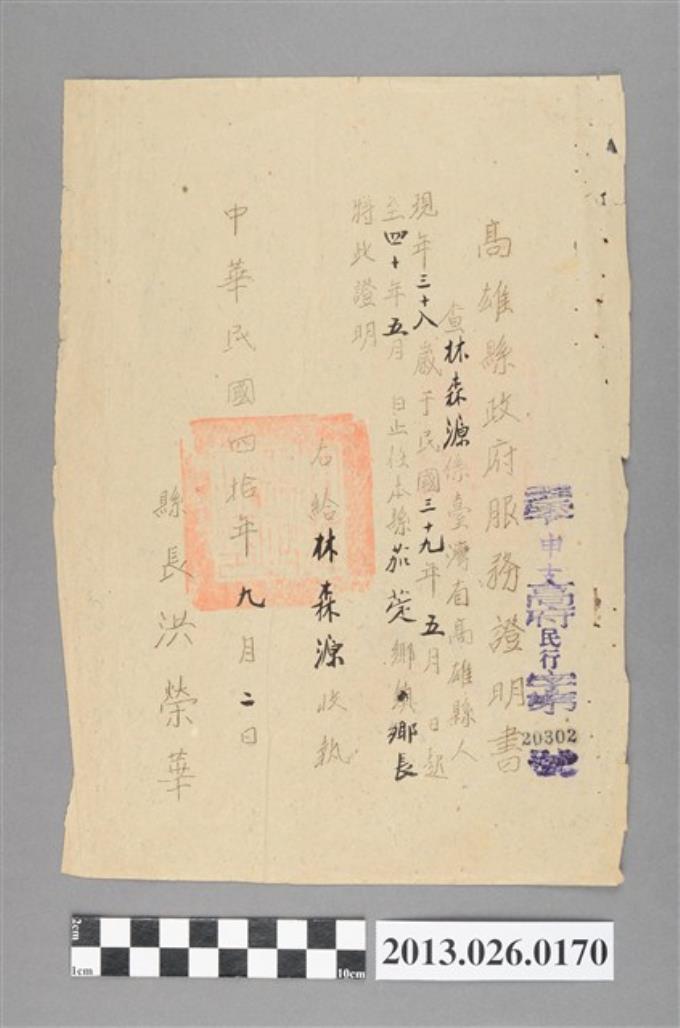 申文高府民行字第
20302
號
高雄縣政府服務證明書
查林森源係臺灣省高雄縣人
現年三十八歲于民國三十九年五月 日起
至四十年五月 日止任本縣茄萣鄉鎮鄉長
特此證明
右給林森源收執
中華民國四拾年九月二日
縣長洪榮華
2cm
1cm
10cm
2013.026.0170